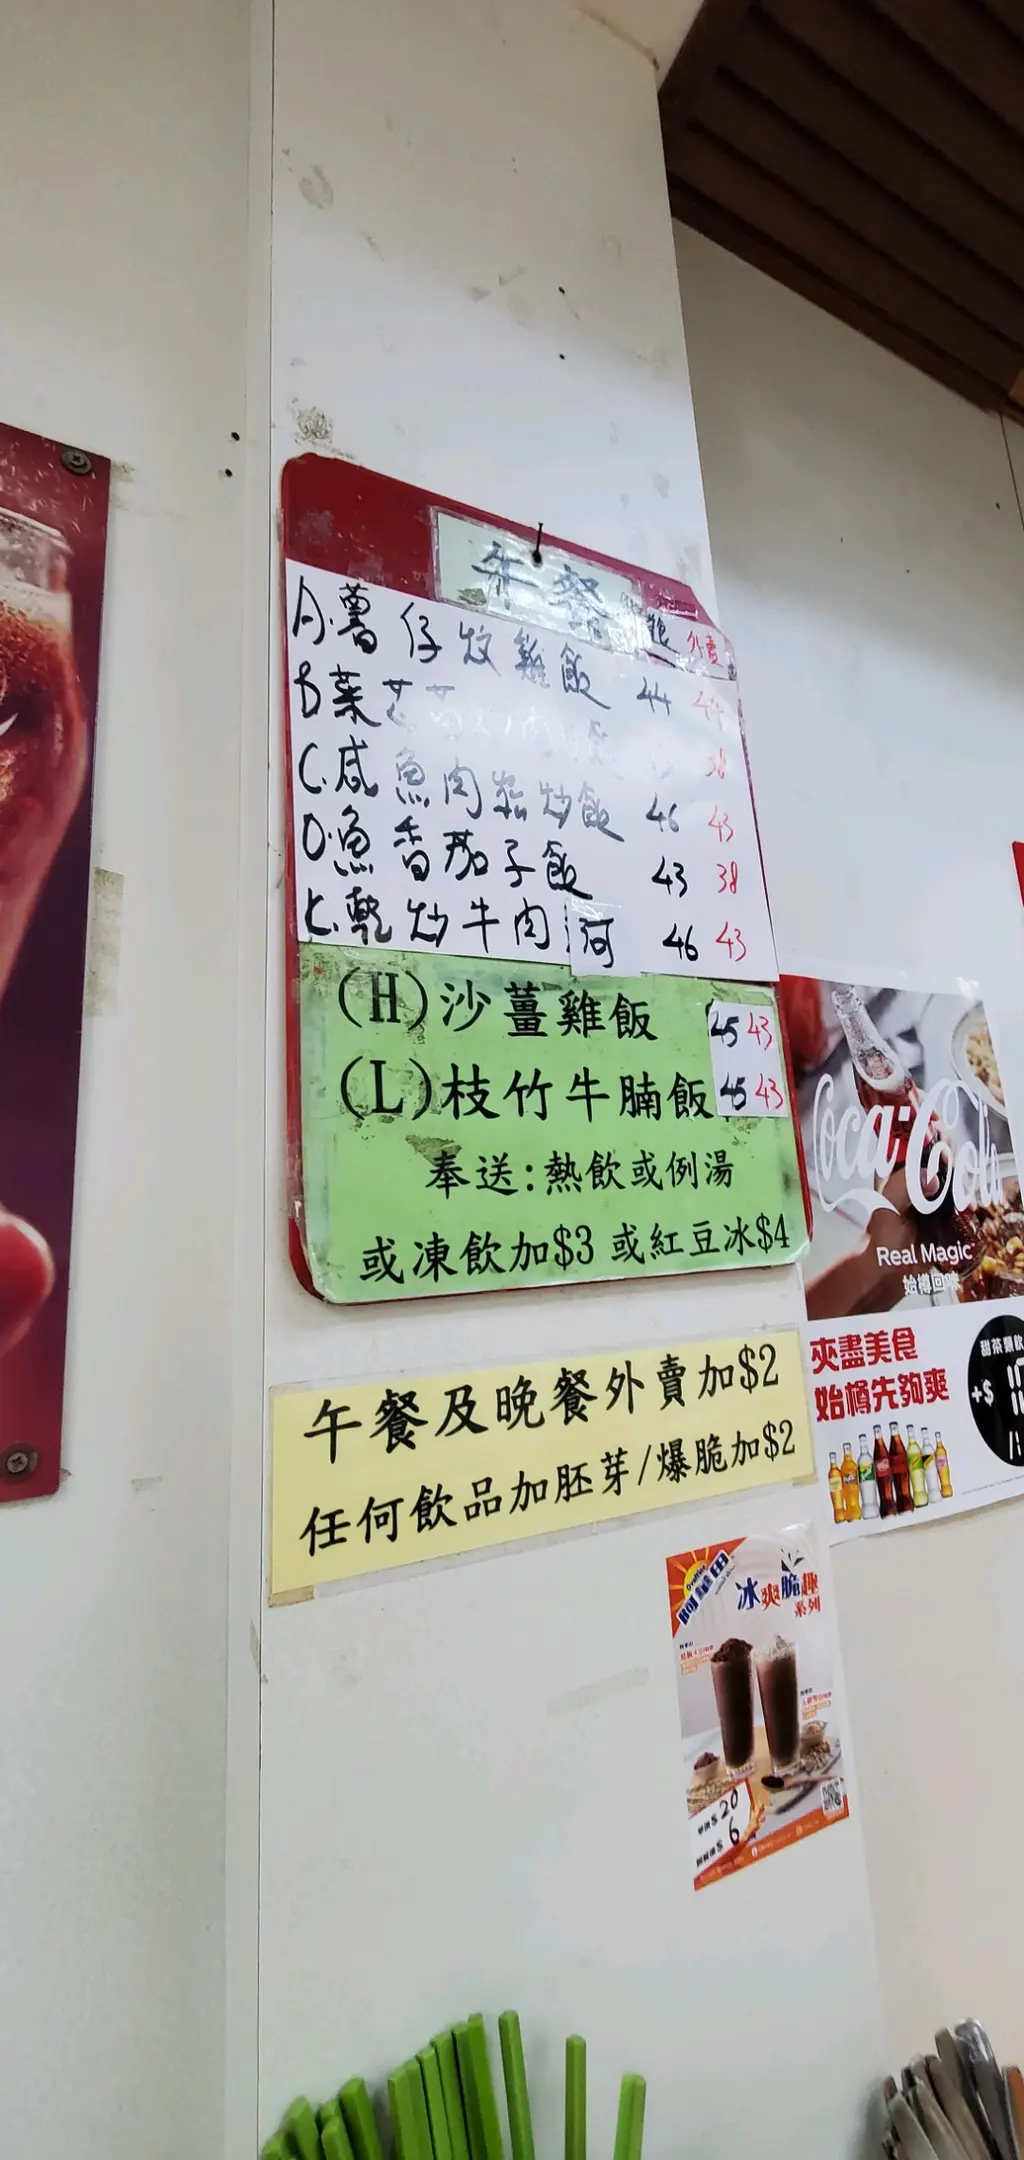 午餐
外賣
A.薯仔炆雞飯 44
B菜
38
C.咸魚肉崧炒飯 46 43
D.魚香茄子飯 43 38
E.乾炒牛肉河 46 43
(H)沙薑雞飯 45 43
(L)枝竹牛腩飯 45 43
奉送:熱飲或例湯
或凍飲加$3 或紅豆冰$4
午餐及晚餐外賣加$2
任何飲品加胚芽/爆脆加$2
Coca-Cola
Real Magic
始樽回味
夾盡美食
始樽先夠爽
+$
Ovaltine
阿華田
冰爽脆趣
系列
$20
$6